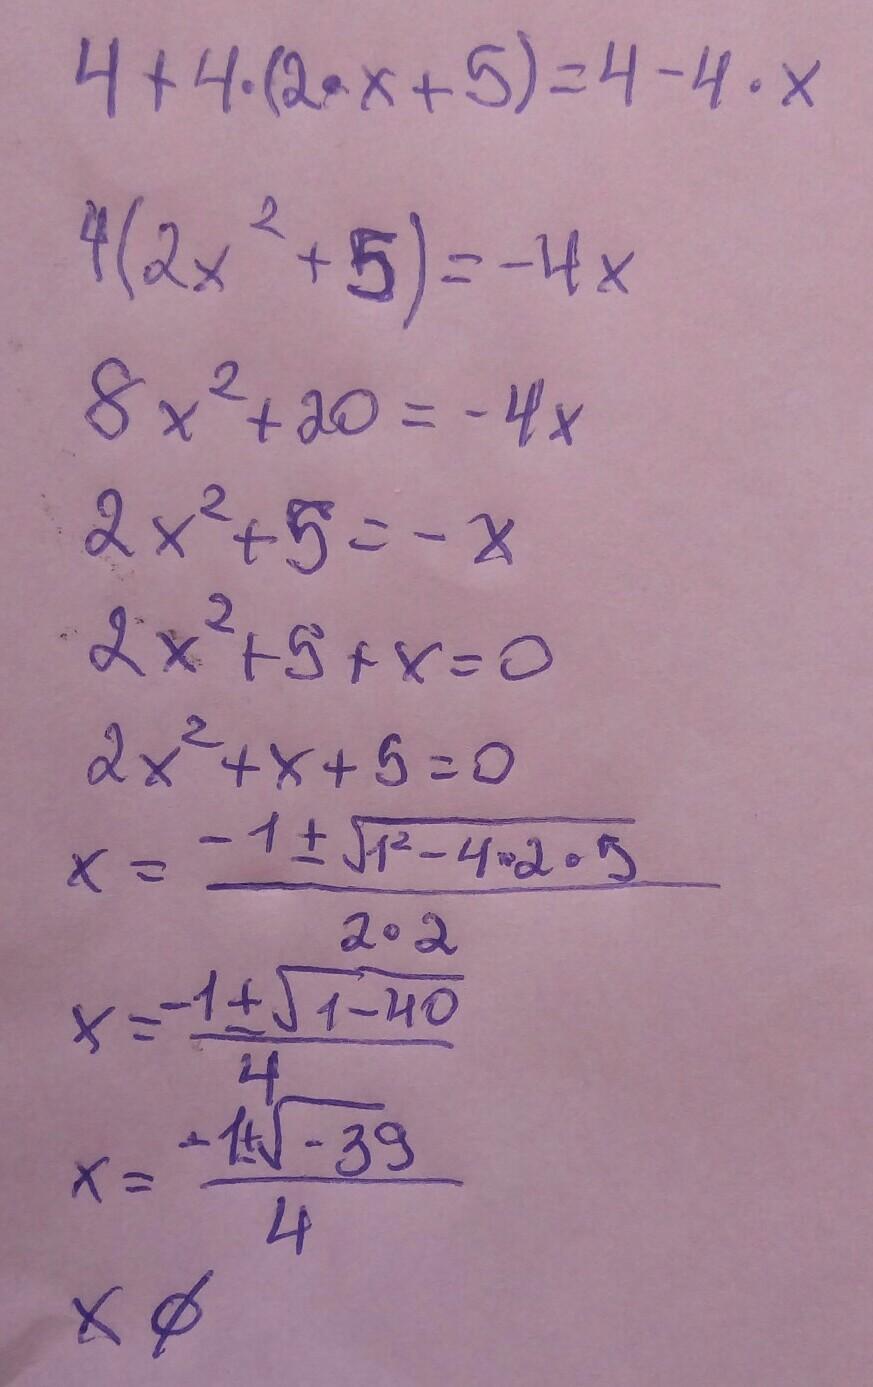 4+4·(2·x+5)=4-4·x
4(2x²+5)=-4x
8x²+20=-4x
2x²+5=-x
2x²+5+x=0
2x²+x+5=0
x=(-1±√(1²-4·2·5))/(2·2)
x=(-1±√(1-40))/4
x=(-1±√(-39))/4
x ∅